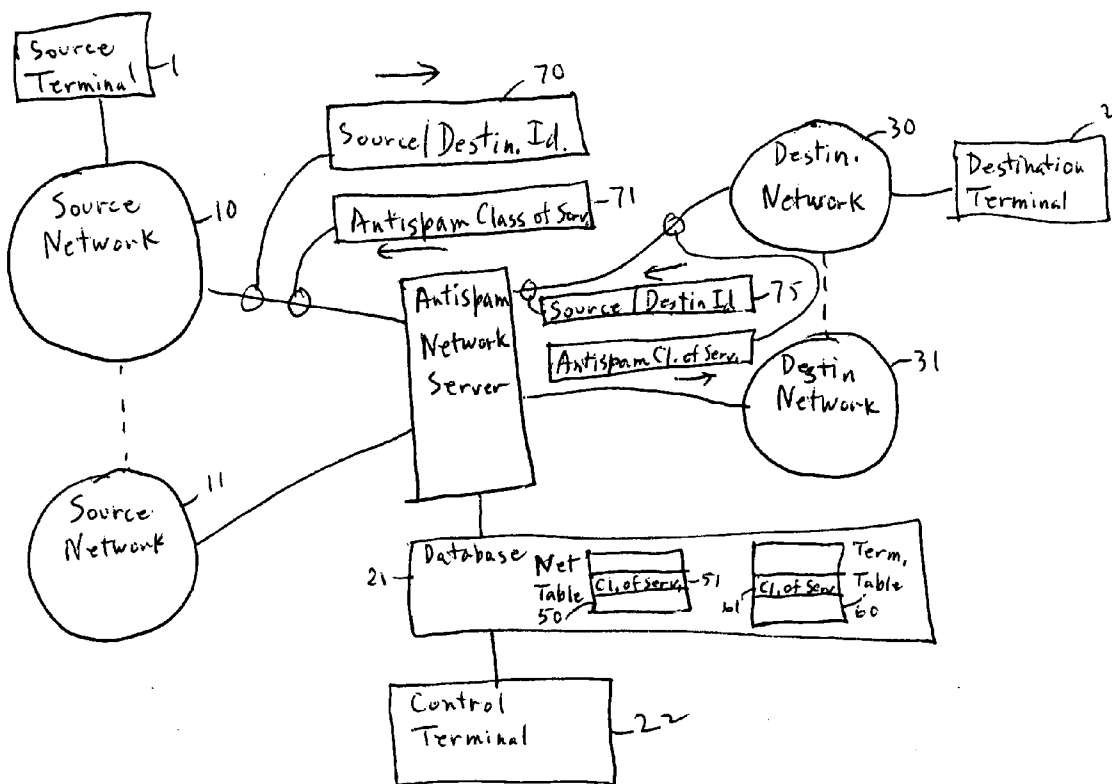 Source
Terminal
1
70
Source/Destin. Id.
71
Antispam Class of Serv.
Source
Network
10
Destin.
Network
30
2
Destination
Terminal
Antispam
Network
Server
75
Source/Destin Id
Antispam Cl. of Serv.
Destin
Network
31
Source
Network
11
21
Database
Net
Table
50
Cl. of Serv.
51
Term.
Table
60
Cl. of Serv.
61
Control
Terminal
22